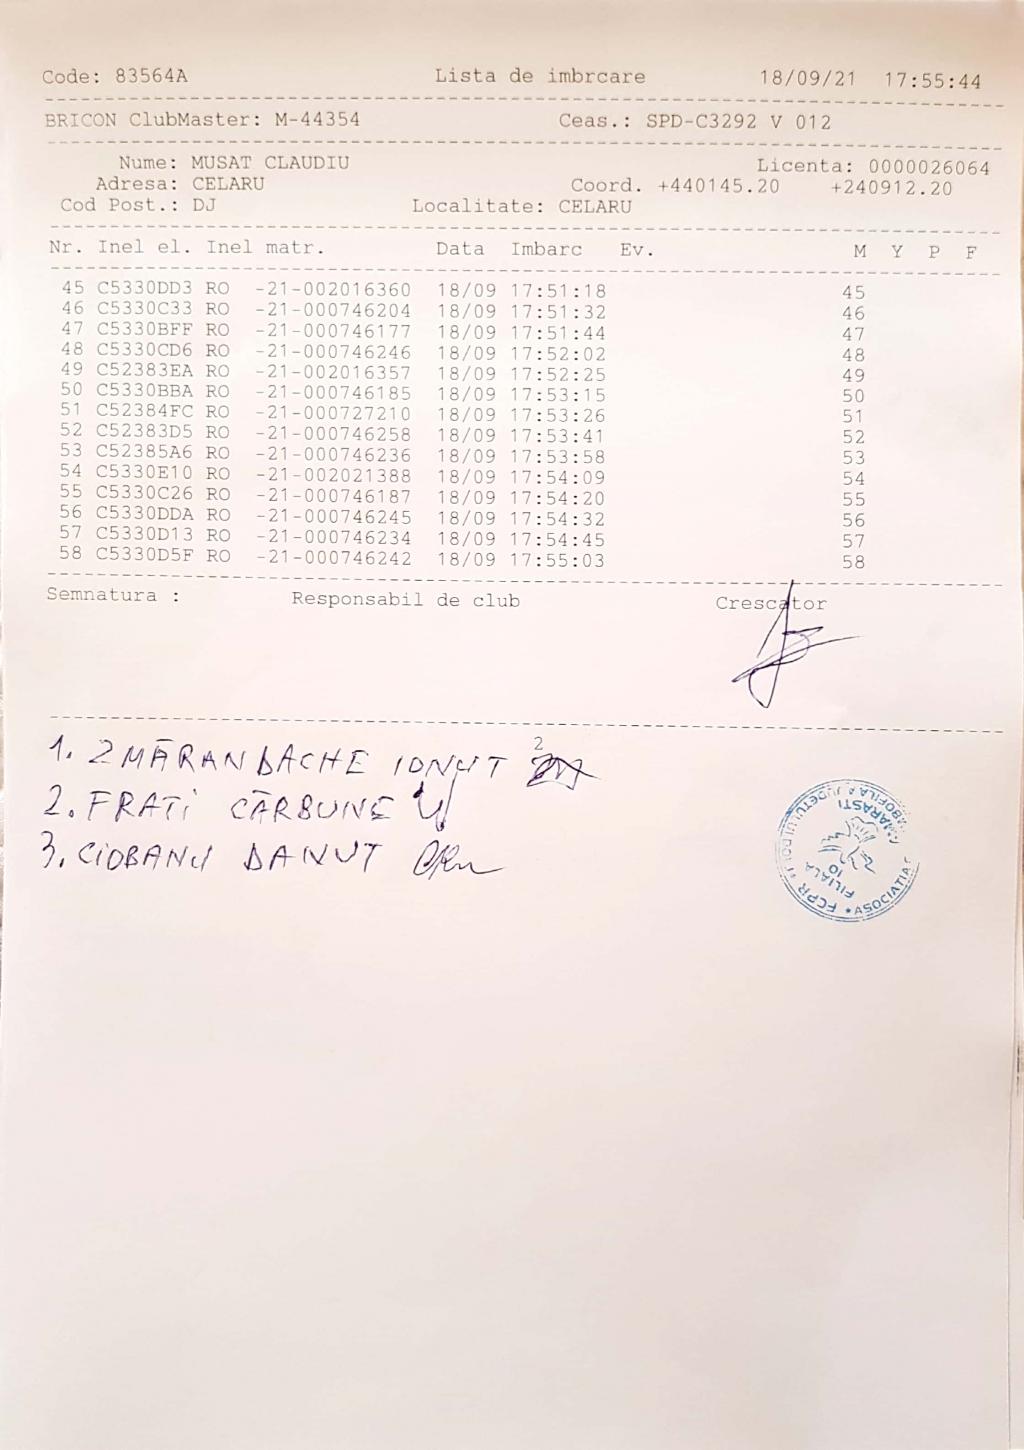 Code: 83564A Lista de imbrcare 18/09/21 17:55:44
BRICON ClubMaster: M-44354 Ceas.: SPD-C3292 V 012
Nume: MUSAT CLAUDIU Licenta: 0000026064
Adresa: CELARU Coord. +440145.20 +240912.20
Cod Post.: DJ Localitate: CELARU
Nr. Inel el. Inel matr. Data Imbarc Ev. M Y P F
45 C5330DD3 RO -21-002016360 18/09 17:51:18 45
46 C5330C33 RO -21-000746204 18/09 17:51:32 46
47 C5330BFF RO -21-000746177 18/09 17:51:44 47
48 C5330CD6 RO -21-000746246 18/09 17:52:02 48
49 C52383EA RO -21-002016357 18/09 17:52:25 49
50 C5330BBA RO -21-000746185 18/09 17:53:15 50
51 C52384FC RO -21-000727210 18/09 17:53:26 51
52 C52383D5 RO -21-000746258 18/09 17:53:41 52
53 C52385A6 RO -21-000746236 18/09 17:53:58 53
54 C5330E10 RO -21-002021388 18/09 17:54:09 54
55 C5330C26 RO -21-000746187 18/09 17:54:20 55
56 C5330DDA RO -21-000746245 18/09 17:54:32 56
57 C5330D13 RO -21-000746234 18/09 17:54:45 57
58 C5330D5F RO -21-000746242 18/09 17:55:03 58
Semnatura : Responsabil de club Crescator
2
1. ZMĂRANDACHE IONUT
2. FRATI CĂRBUNE
3. CIOBANU DANUT
FCPR * ASOCIATIA
FILIALA
10
MARASTI